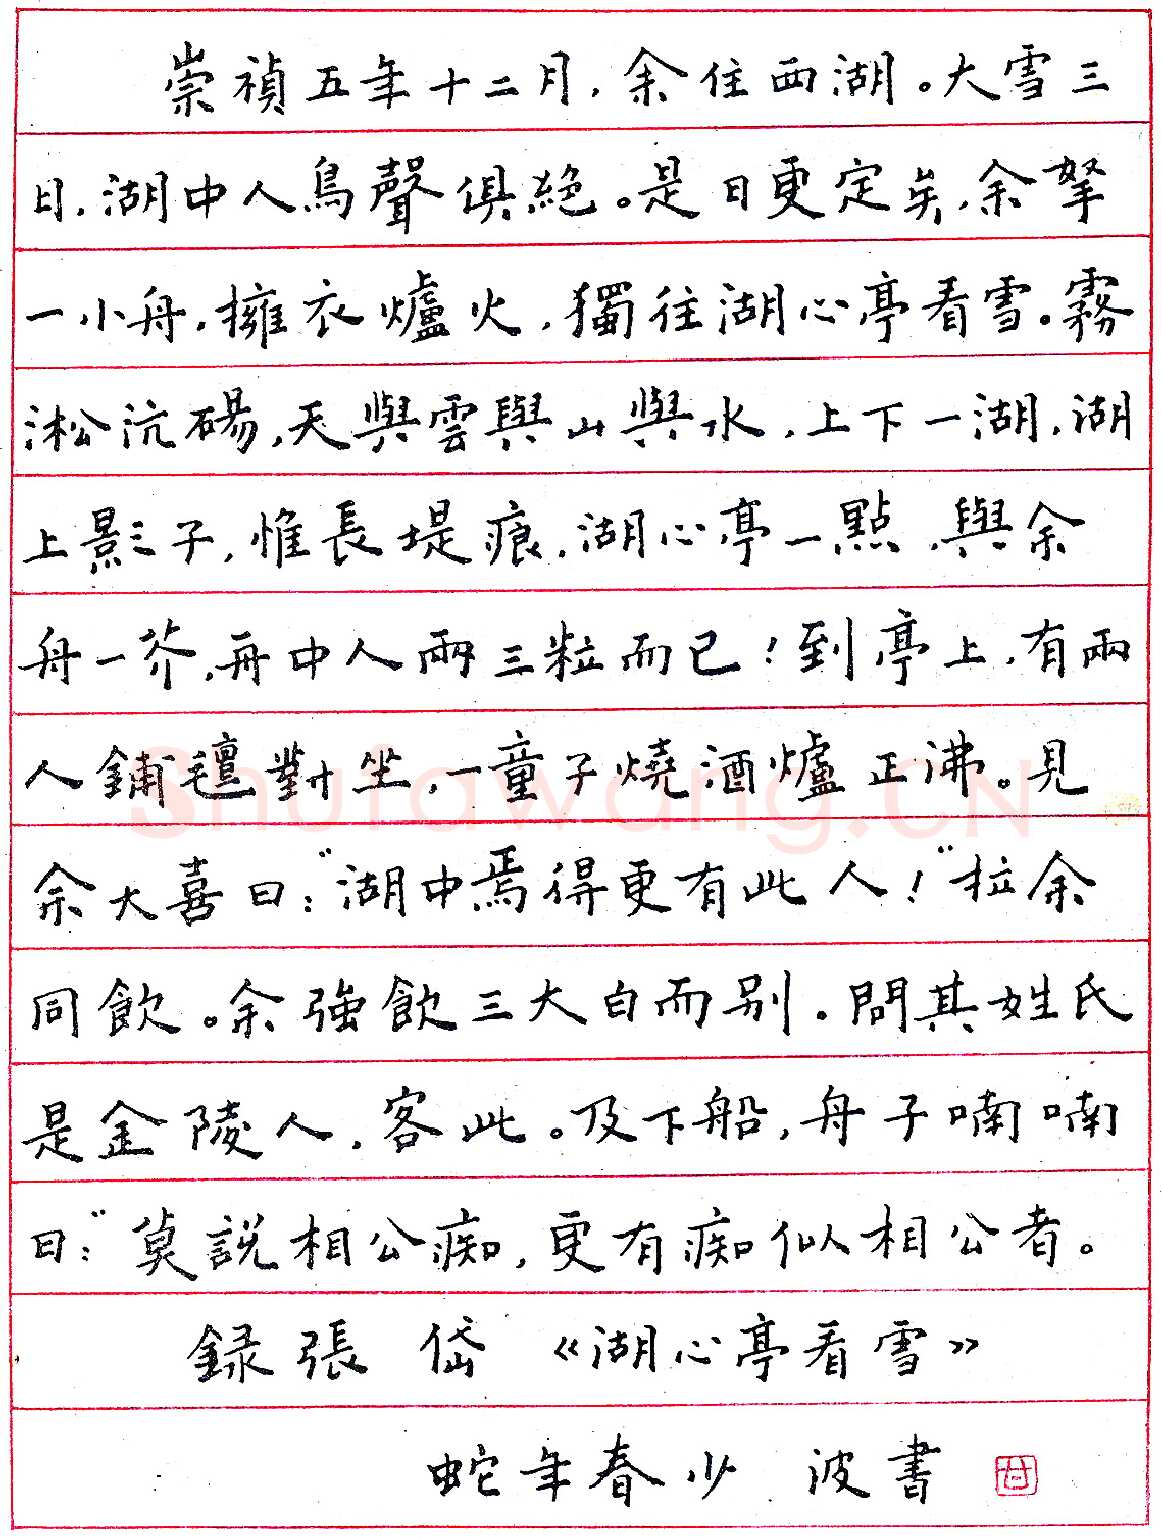 崇禎五年十二月，余住西湖。大雪三
日，湖中人鳥聲俱絶。是日更定矣，余拏
一小舟，擁衣爐火，獨往湖心亭看雪。霧
淞沆碭，天與雲與山與水，上下一湖，湖
上影子，惟長堤痕，湖心亭一點，與余
舟一芥，舟中人兩三粒而已！到亭上，有兩
人鋪氈對坐，一童子燒酒爐正沸。見
余大喜曰：“湖中焉得更有此人！”拉余
同飲。余強飲三大白而别。問其姓氏
是金陵人，客此。及下船，舟子喃喃
曰：“莫説相公痴，更有痴似相公者。
録張岱《湖心亭看雪》
蛇年春少波書
Shufawang.CN